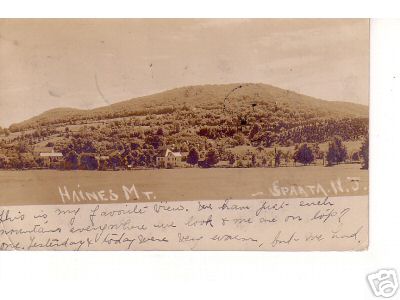 HAINES MT.
SPARTA N.J.
This is my favorite view. We have just such
mountains everywhere we look & we are on top
one. Yesterday & today were very warm, but we had